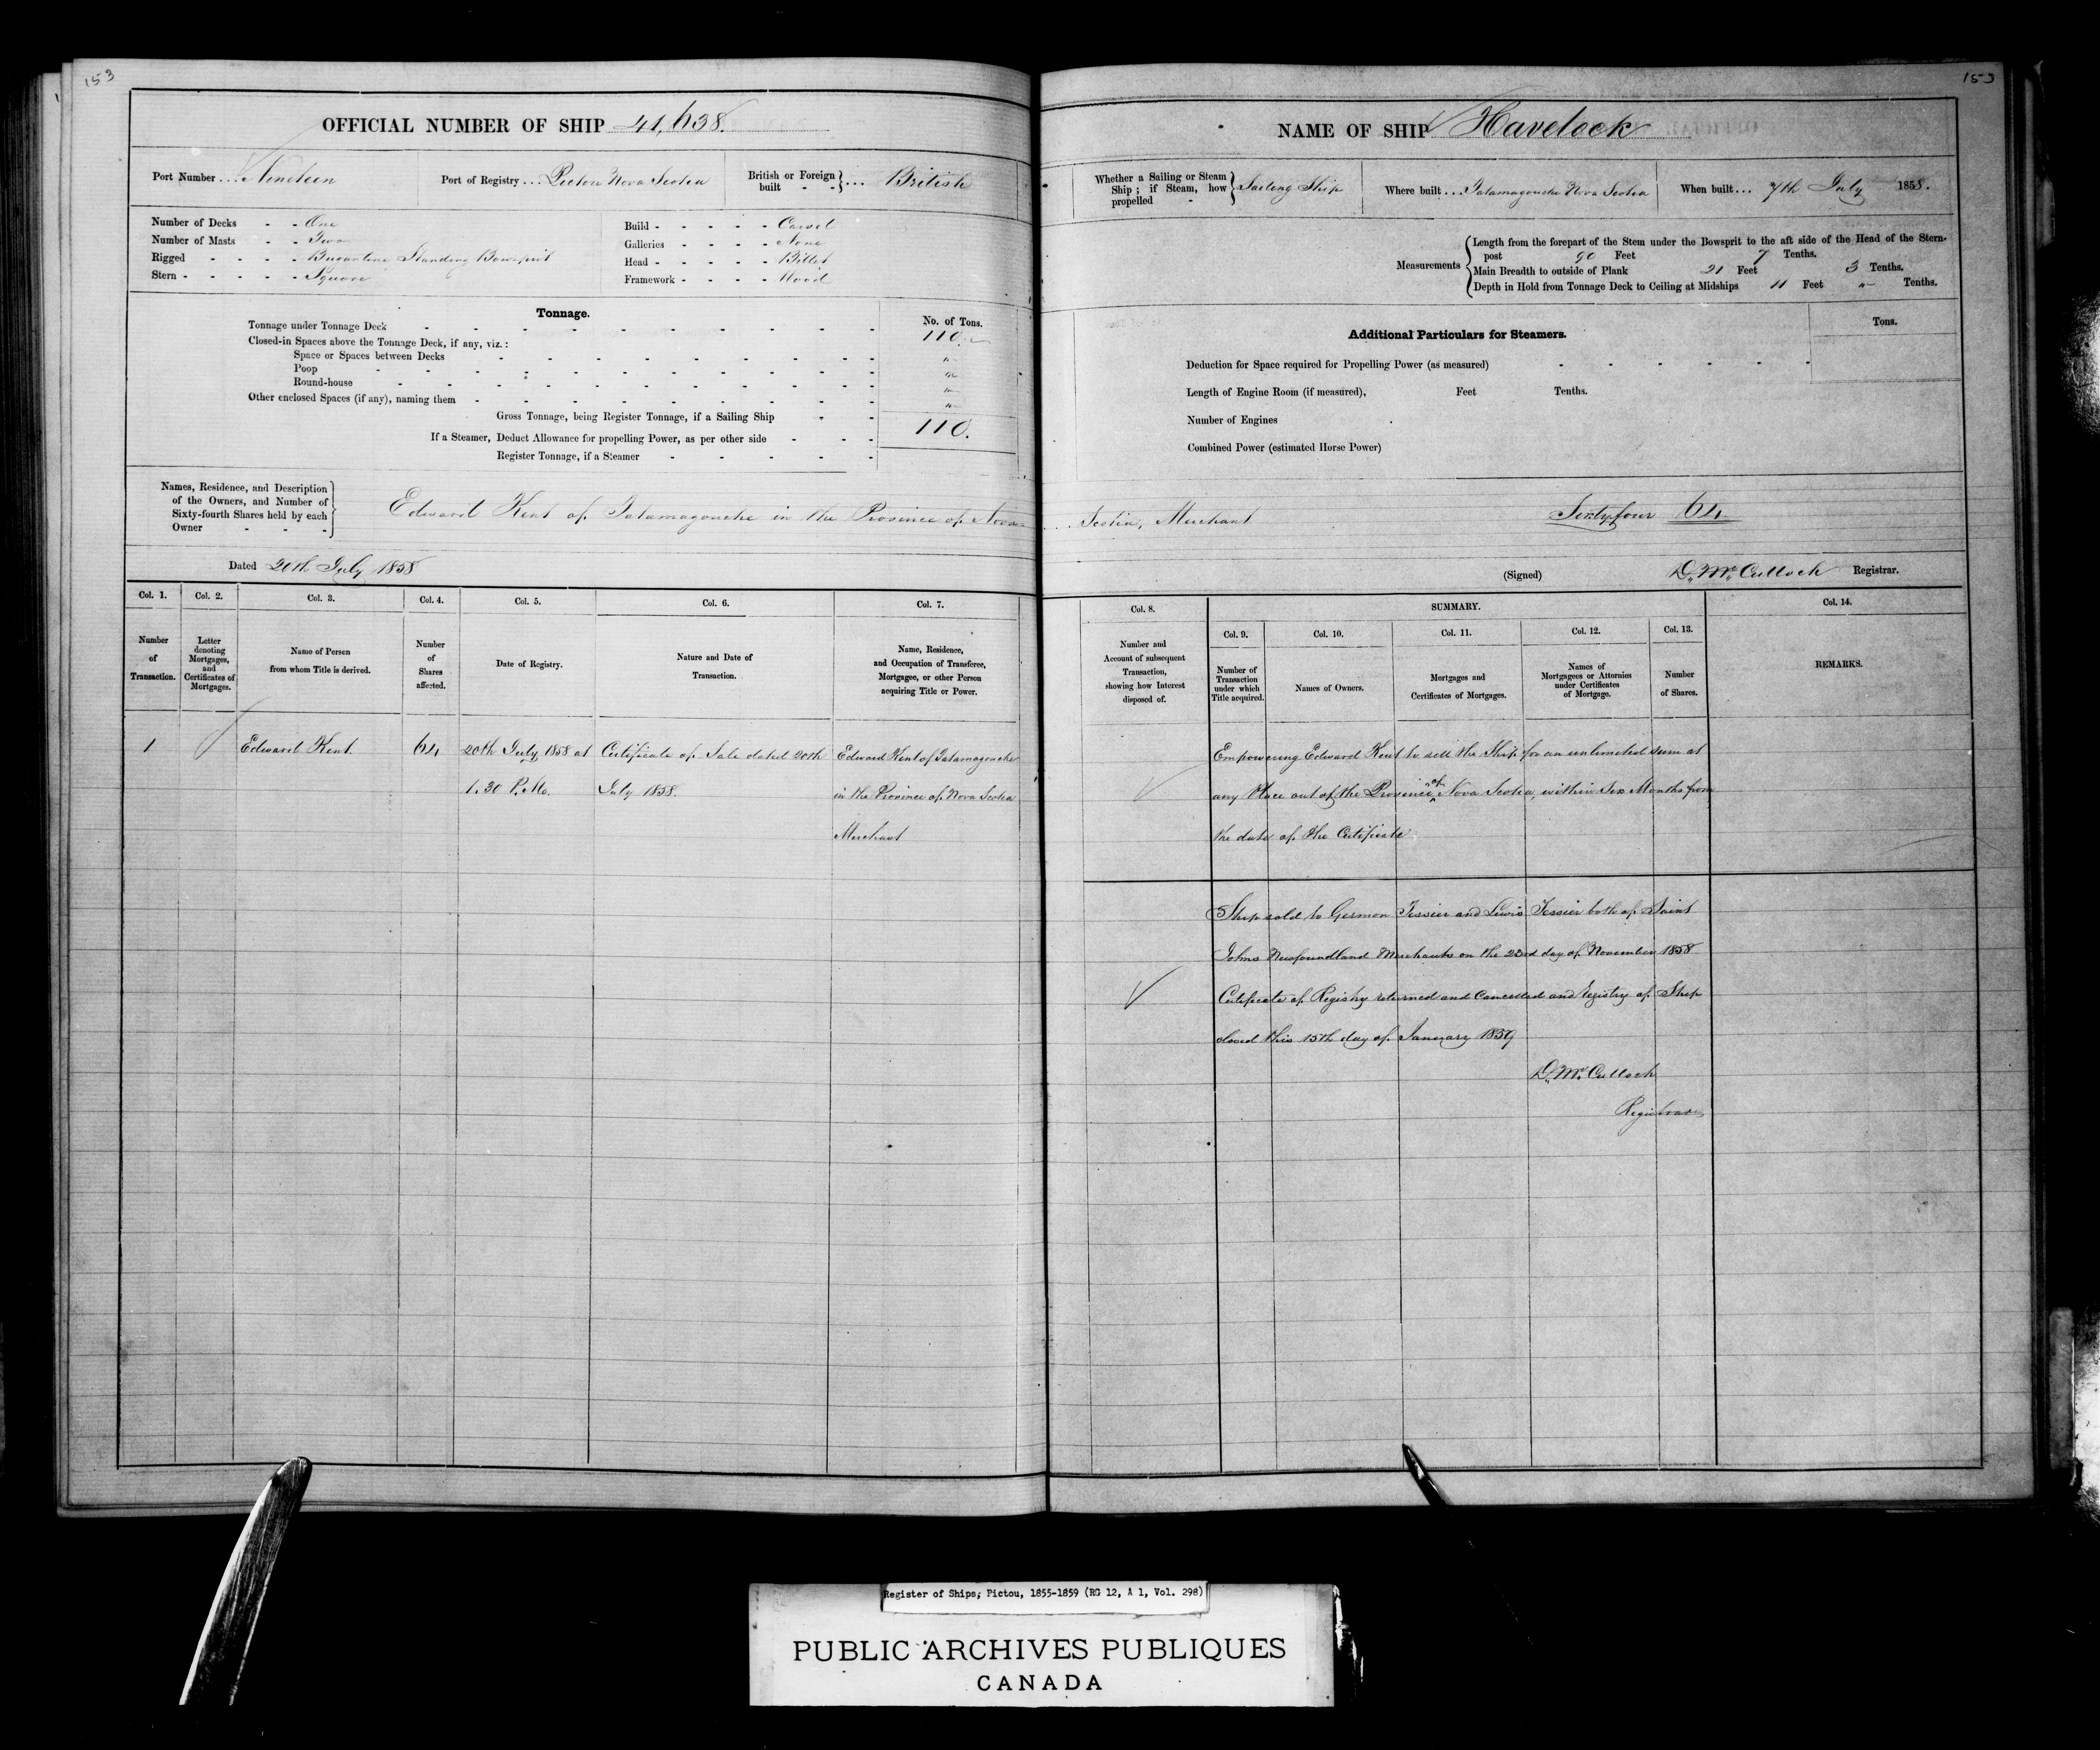 153
OFFICIAL NUMBER OF SHIP 41,638.
Port Number ... Nineteen
Port of Registry ... Pictou Nova Scotia
British or Foreign built - - } ... British
Number of Decks - - One
Number of Masts - - Two
Rigged - - - - Brigantine, Standing Bowsprit
Stern - - - - - Square
Build - - - - - Carvel
Galleries - - - - None
Head - - - - - Billet
Framework - - - - Wood
Tonnage.
No. of Tons.
Tonnage under Tonnage Deck 110.
Closed-in Spaces above the Tonnage Deck, if any, viz.:
Space or Spaces between Decks "
Poop "
Round-house "
Other enclosed Spaces (if any), naming them "
Gross Tonnage, being Register Tonnage, if a Sailing Ship 110.
If a Steamer, Deduct Allowance for propelling Power, as per other side
Register Tonnage, if a Steamer
Names, Residence, and Description
of the Owners, and Number of
Sixty-fourth Shares held by each
Owner - - -
Edward Kent of Tatamagouche in the Province of Nova
Dated 20th July 1858
Col. 1.
Number
of
Transaction.
Col. 2.
Letter
denoting
Mortgages,
and
Certificates of
Mortgages.
Col. 3.
Name of Person
from whom Title is derived.
Col. 4.
Number
of
Shares
affected.
Col. 5.
Date of Registry.
Col. 6.
Nature and Date of
Transaction.
Col. 7.
Name, Residence,
and Occupation of Transferee,
Mortgagee, or other Person
acquiring Title or Power.
1
Edward Kent
64
20th July 1858 at
1.30 P.M.
Certificate of Sale dated 20th
July 1858.
Edward Kent of Tatamagouche
in the Province of Nova Scotia
Merchant
153
NAME OF SHIP Havelock
Whether a Sailing or Steam
Ship; if Steam, how
propelled -
Sailing Ship
Where built ... Tatamagouche Nova Scotia
When built ... 7th July 1858.
Measurements
Length from the forepart of the Stem under the Bowsprit to the aft side of the Head of the Stern-
post 90 Feet 7 Tenths.
Main Breadth to outside of Plank 21 Feet 3 Tenths.
Depth in Hold from Tonnage Deck to Ceiling at Midships 11 Feet " Tenths.
Additional Particulars for Steamers.
Tons.
Deduction for Space required for Propelling Power (as measured)
Length of Engine Room (if measured), Feet Tenths.
Number of Engines
Combined Power (estimated Horse Power)
Scotia, Merchant
Sixtyfour 64
(Signed) D. McCulloch Registrar.
Col. 8.
Number and
Account of subsequent
Transaction,
showing how Interest
disposed of.
SUMMARY.
Col. 9.
Number of
Transaction
under which
Title acquired.
Col. 10.
Names of Owners.
Col. 11.
Mortgages and
Certificates of Mortgages.
Col. 12.
Names of
Mortgagees or Attornies
under Certificates
of Mortgage.
Col. 13.
Number
of Shares.
Col. 14.
REMARKS.
Empowering Edward Kent to sell the Ship for an unlimited sum at
any Place out of the Province of Nova Scotia, within Six Months from
the date of the Certificate
Ship sold to Germon Tessier and Lewis Tessier both of Saint
Johns Newfoundland Merchants on the 22nd day of November 1858
Certificate of Registry returned and Cancelled and Registry of Ship
closed this 15th day of January 1859
D. McCulloch
Registrar
Register of Ships, Pictou, 1855-1859 (RG 12, A 1, Vol. 298)
PUBLIC ARCHIVES PUBLIQUES
CANADA